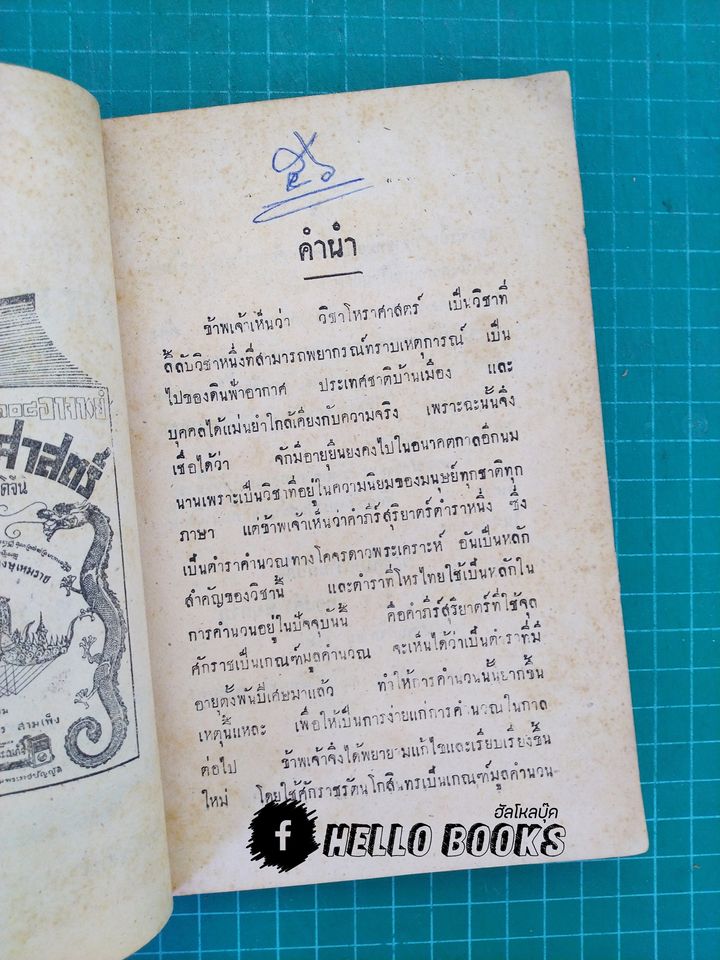 ๒๐๘ อาจารย์
ศาสตร์
ดิจีน
คำนำ
ข้าพเจ้าเห็นว่า วิชาโหราศาสตร์ เป็นวิชาที่
ลี้ลับวิชาหนึ่งที่สามารถพยากรณ์ทราบเหตุการณ์ เป็น
ไปของดินฟ้าอากาศ ประเทศชาติบ้านเมือง และ
บุคคลได้แม่นยำใกล้เคียงกับความจริง เพราะฉะนั้นจึง
เชื่อได้ว่า จักมีอายุยืนยงคงไปในอนาคตกาลอีกนม
นานเพราะเป็นวิชาที่อยู่ในความนิยมของมนุษย์ทุกชาติทุก
ภาษา แต่ข้าพเจ้าเห็นว่าคำภีร์สุริยาตร์ตำราหนึ่ง ซึ่ง
เป็นตำราคำนวณทางโคจรดาวพระเคราะห์ อันเป็นหลัก
สำคัญของวิชานี้ และตำราที่โหรไทยใช้เป็นหลักใน
การคำนวนอยู่ในปัจจุบันนี้ คือคำภีร์สุริยาตร์ที่ใช้จุล
ศักราชเป็นเกณฑ์มูลคำนวณ จะเห็นได้ว่าเป็นตำราที่มี
อายุตั้งพันปีเศษมาแล้ว ทำให้การคำนวนนั้นยากขึ้น
เหตุนี้แหละ เพื่อให้เป็นการง่ายแก่การคำนวณในกาล
ต่อไป ข้าพเจ้าจึงได้พยายามแก้ไขและเรียบเรื่องขึ้น
ใหม่ โดยใช้ศักราชรัตนโกสินทรเป็นเกณฑ์มูลคำนวน
สามเพ็ง
ฮัลโหลบุ๊ค
f HELLO BOOKS